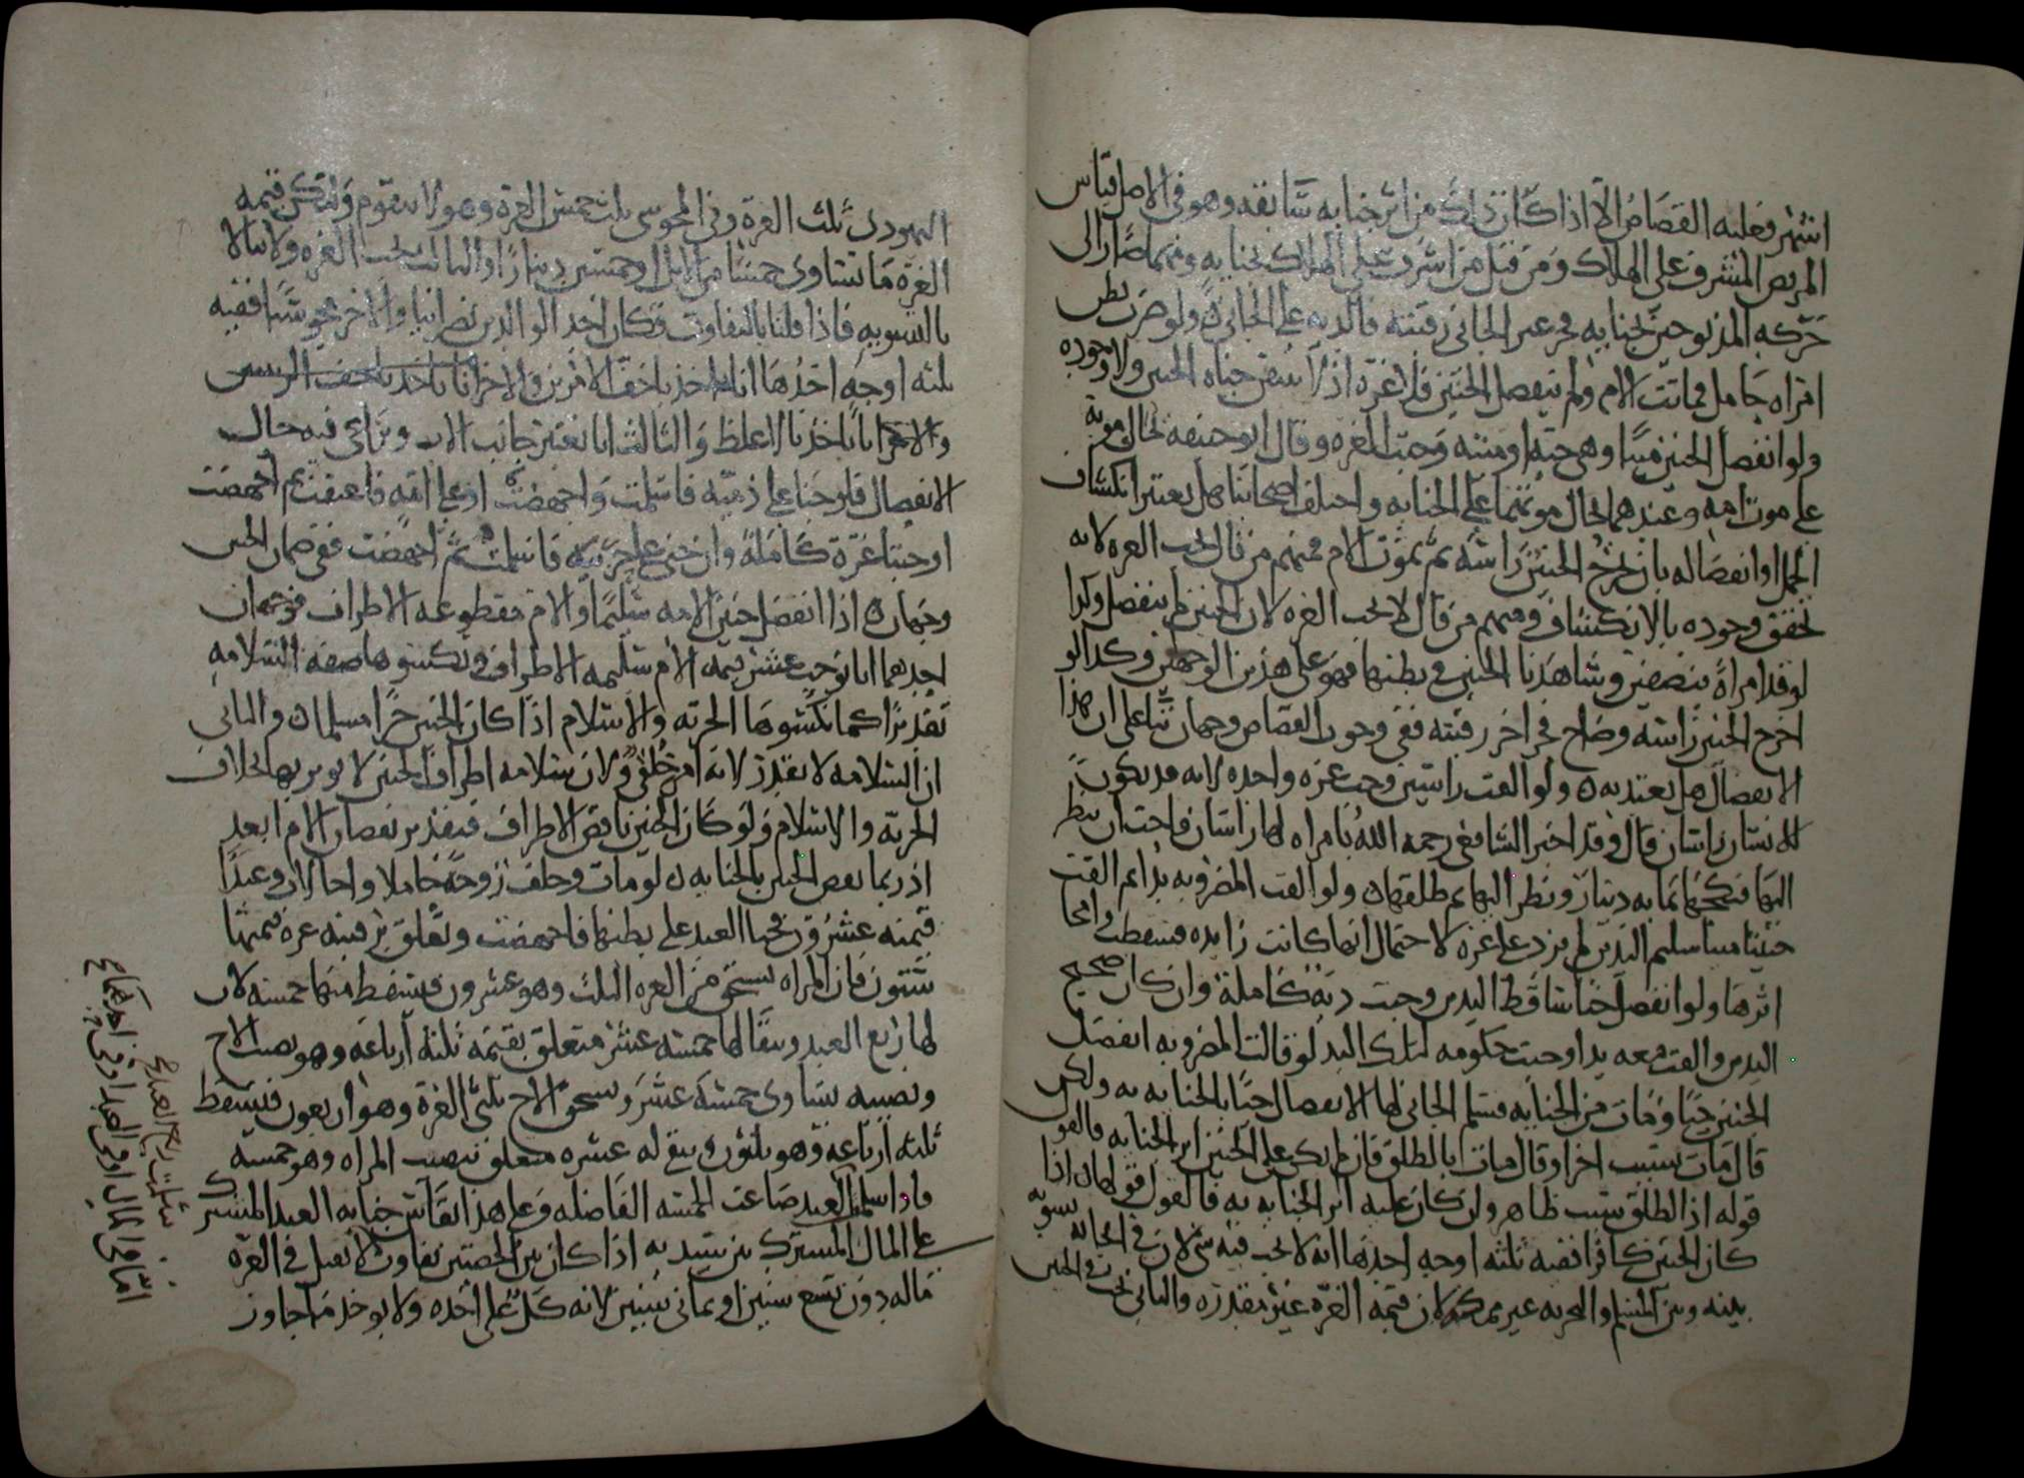 اشهر فعليه القصاص الا اذا كان ذلك من اثر جنايه سابقه وهو في الاصل قياس
المريض المشرف على الهلاك ومن قتل من اشرف على الهلاك بجنايه ومهما صار الى
حركه المذبوحين بجنايه فحز عير الجاني رقبته فالديه على الجاني ولو ضرب بطن
امراه حامل فماتت الام ولم ينفصل الجنين فلا غره اذ لا نتيقن جناه الجنين ولا وجوده
ولو انفصل الجنين ميتا وهي حيه او ميته وجبت الغره وقال ابو حنيفه يحال موته
على موت امه وعندهما يحال موتهما على الجنايه واختلف اصحابنا هل يعتبر انكشاف
الحمل او انفصاله بان يخرج الجنين راسه ثم تموت الام فمنهم من قال تجب الغره لانه
تحقق وجوده بالانكشاف ومنهم من قال لا تجب الغره لان الجنين لم ينفصل وكذا
لو قد امراة بنصفين وشاهدنا الجنين في بطنها فهو على هذين الوجهين وكذا لو
اخرج الجنين راسه وصاح فحز اخر رقبته ففي وجوب القصاص وجهان بناء على ان هذا
الانفصال هل يعتد به ولو القت راسين وجبت غره واحده لانه قد يكون
للانسان راسان قال وقد اخبر الشافعي رحمه الله بامراه لها راسان فاحب ان ينظر
اليها فنكحها بمايه دينار ونظر اليها ثم طلقها ولو القت المضروبه يدا ثم القت
جنينا ميتا سليم اليدين لم يزد على غره لاحتمال انها كانت زايده فسقطت وامحا
اثرها ولو انفصل حيا ساقط اليدين وجبت ديه كامله وان كان صحيح
اليدين والقت معه يدا وجبت حكومه لتلك اليد لو قالت المضروبه انفصل
الجنين حيا ومات من الجنايه فسلم الجاني لها الانفصال حيا بالجنايه به ولكن
قال مات بسبب اخر او قال ماتت بالطلق فان لم يكن على الجنين اثر الجنايه فالقول
قوله اذ الطلق سبب ظاهر وان كان عليه اثر الجنايه به فالقول قولها اذا
كان الجنين كافرا ففيه ثلثه اوجه احدها انه لا يجب فيه شي لان في ايجابه تسويه
بينه وبين المسلم والتجزيه غير ممكنه لان قيمه الغره غير مقدره والثاني تجب في الجنين
اليهودي ثلث الغرة وفي المجوسي ثلث خمس الغرة وهو لا يتقوم ولتكن قيمه
الغرة ما تساوي خمسا من الابل او خمسين دينارا والثالث تجب الغره ولا نبالا
بالتسويه فاذا قلنا بالتفاوت فكان احد الوالدين نصرانيا والاخر مجوسيا ففيه
ثلثه اوجه احدها انا ناخذ باخف الامرين والاخر انا ناخذ باخف
والاخر انا ناخذ بالاغلظ والثالث انا نعتبر جانب الاب ويراعى فيه حال
الانفصال فلو جنا على ذميه فاسلمت واجهضت او على امه فاعتقت ثم اجهضت
اوجبنا غرة كاملة وان جنى على حربيه فاسلمت ثم اجهضت ففي ضمان الجنين
وجهان اذا انفصل جنين الامه سليما والام مقطوعه الاطراف فوجهان
احدهما انا نوجب عشر قيمه الام سليمه الاطراف ونكسوها صفه السلامه
تقديرا كما نكسوها الحريه والاسلام اذا كان الجنين حرا مسلما والثاني
ان السلامه لا تقدر لانه امر خلقي ولان سلامه اطراف الجنين لا يوثر بها بخلاف
الحريه والاسلام ولو كان الجنين ناقص الاطراف فتقدير نقصان الام ابعد
اذ ربما نقص الجنين بالجنايه لو مات وخلف زوجة حاملا واخا لاب وعبدا
قيمته عشرون فجنا العبد على بطنها فاجهضت وتعلق برقبته غره قيمتها
ستون فان المراه تستحق من الغره الثلث وهو عشرون فيسقط منها خمسه لان
لها ربع العبد ويبقا لها خمسه عشر متعلق بقيمه ثلثه ارباعه وهو نصيب الاخ
ونصيبه يساوي خمسه عشر ويستحق الاخ ثلثي الغرة وهو اربعون فيسقط
ثلثه ارباعه وهو ثلثون ويبقى له عشره متعلق بنصيب المراه وهو خمسه
فاذا سلما العبد ضاعت الخمسه الفاضله وعلى هذا نقاس جنايه العبد المشترك
على المال المشترك بين سيديه اذا كان بين الحصتين تفاوت لا نقبل في الغره
ماله دون تسع سنين او ثماني سنين لانه كل على اخذه ولا يوخذ ما جاوز